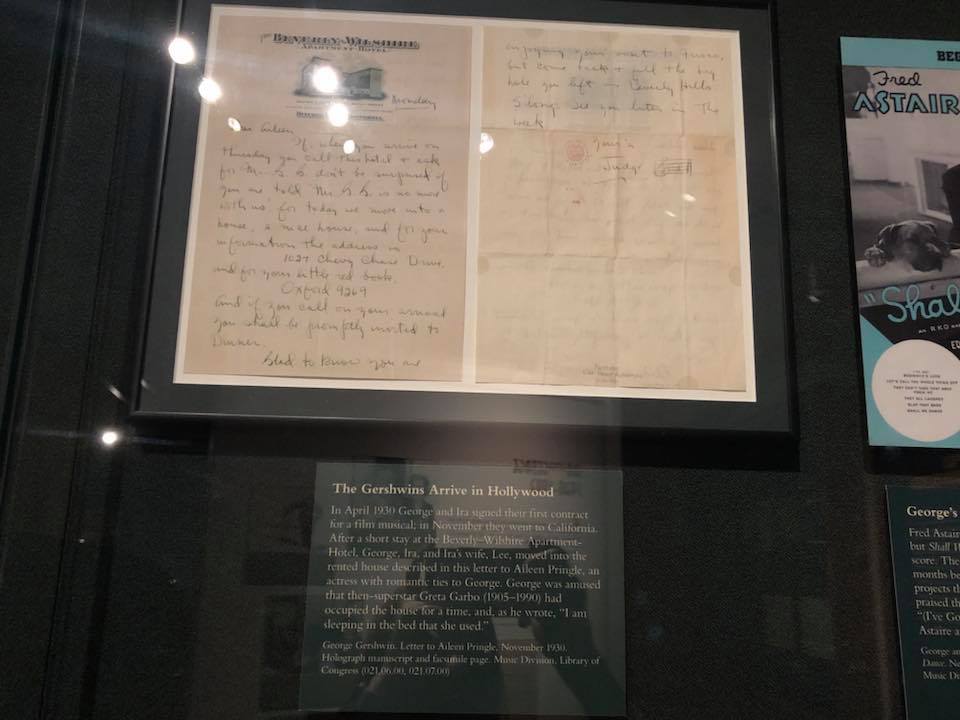 BEVERLY-WILSHIRE
APARTMENT-HOTEL
Monday
Dear Aileen,
If, when you arrive on
Thursday you call this hotel & ask
for Mr. G. G. don't be surprised if
you are told "Mr. G. G. is no more
with us" for today we move into a
house, a nice house, and for your
information the address is
1027 Chevy Chase Drive.
and for your little red book,
Oxford 9269
And if you call on your arrival
you shall be promptly invited to
Dinner.
Glad to know you are
enjoying your
but come back & fill the big
hole you left in Beverly Hills
S'long. See you later in the
week
The Gershwins Arrive in Hollywood
In April 1930 George and Ira signed their first contract
for a film musical; in November they went to California.
After a short stay at the Beverly–Wilshire Apartment-
Hotel, George, Ira, and Ira's wife, Lee, moved into the
rented house described in this letter to Aileen Pringle, an
actress with romantic ties to George. George was amused
that then-superstar Greta Garbo (1905–1990) had
occupied the house for a time, and, as he wrote, "I am
sleeping in the bed that she used."
George Gershwin. Letter to Aileen Pringle, November 1930.
Holograph manuscript and facsimile page. Music Division, Library of
Congress (021.06.00, 021.07.00)
BEG
Fred
ASTAIR
"Shal
AN RKO
BEGINNER'S LUCK
LET'S CALL THE WHOLE THING OFF
THEY CAN'T TAKE THAT AWAY
FROM ME
THEY ALL LAUGHED
SLAP THAT BASS
SHALL WE DANCE
George's
Fred Astair
but Shall
score. The
months be
projects th
praised th
"(I've Go
Astaire a
George an
Dance. Ne
Music Di